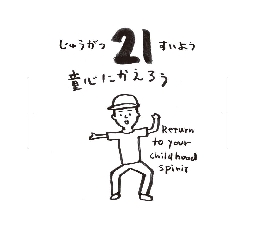 じゅうがつ 21 すいよう
童心にかえろう
Return
to your
childhood
spirit